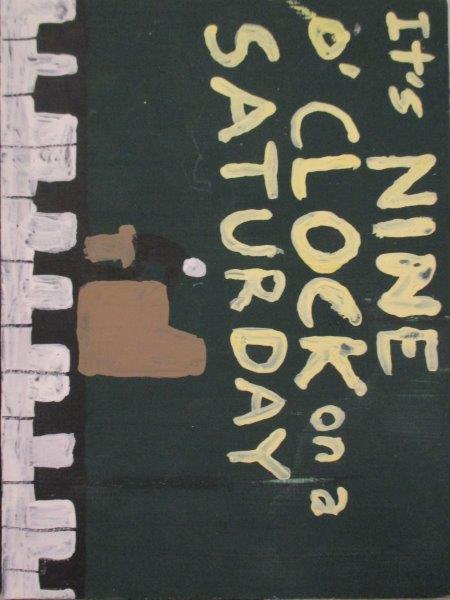 It's NINE
o' CLOCK on a
SATURDAY